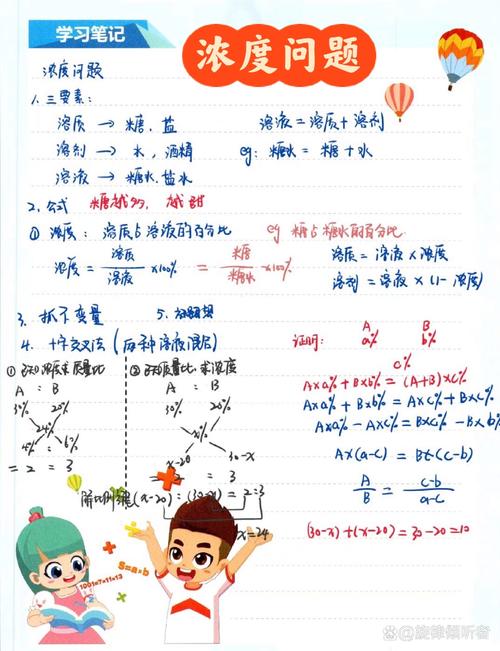 学习笔记
浓度问题
浓度问题
1. 三要素:
溶质 → 糖. 盐
溶液 = 溶质 + 溶剂
溶剂 → 水, 酒精
eg: 糖水 = 糖 + 水
溶液 → 糖水. 盐水
2. 公式 糖越多, 越甜
① 浓度: 溶质占溶液的百分比 eg 糖占糖水的百分比
浓度 = 溶质/溶液 ×100% = 糖/糖水 ×100%
溶质 = 溶液 × 浓度
溶剂 = 溶液 × (1- 浓度)
3. 抓不变量
5.
4. 十字交叉法 (两种溶液混合)
① 已知浓度求质量比
A : B
30% 20%
24%
4% : 6%
= 2 = 3
② 已知质量比求浓度
A : B
30% 20%
x%
x-20 30-x
= 2 : 3
解比例(x-20) : (30-x) = 2:3
x=24
证明:
A B
a% b%
c%
A×a% + B×b% = (A+B)×c%
A×a% + B×b% = A×c% + B×c%
A×a% - A×c% = B×c% - B×b%
A×(a-c) = B×(c-b)
A/B = c-b/a-c
(30-x)+(x-20)=30-20=10
1001=7×11×13
S=a×b
旋律倾听者